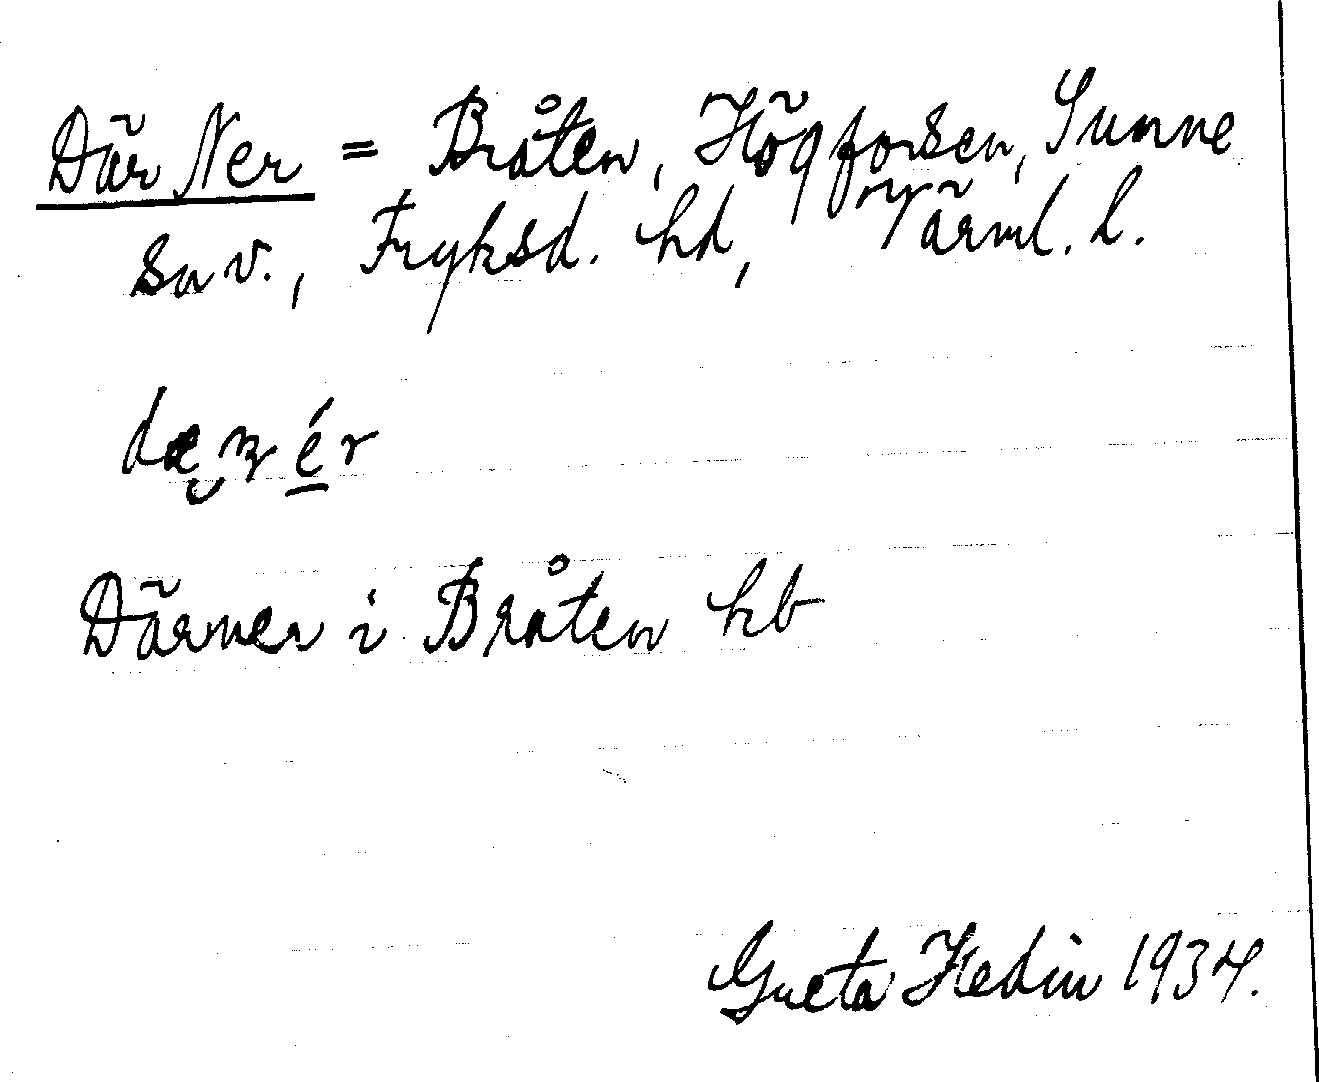 Där Ner = Bråten, Högforsen, Sunne
sn v., Fryksd. hd, Värml. l.
dæ̯n ér
Därner i Bråten hb
Greta Hedin 1934.